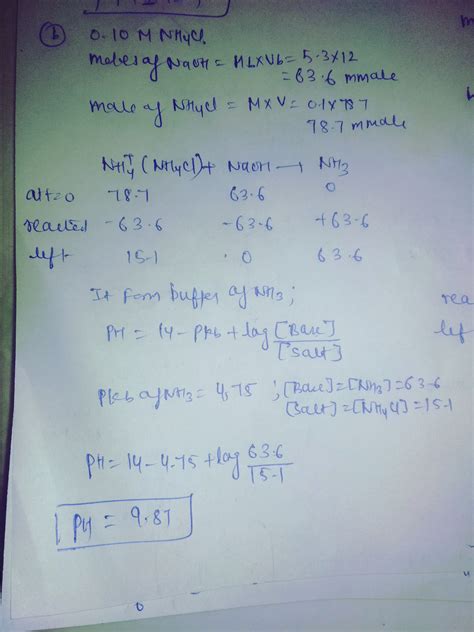 (b) 0.10 M NH4Cl
moles of NaOH = MbxVb = 5.3x12
= 63.6 mmole
mole of NH4Cl = MxV = 0.1x787
78.7 mmole
NH4+ (NH4Cl) + NaOH → NH3
at t=0 78.7 63.6 0
reacted -63.6 -63.6 +63.6
left 15.1 0 63.6
It form buffer of NH3;
PH = 14 - Pkb + log [Base]/[Salt]
Pkb of NH3 = 4.75 ; [Base] = [NH3] = 63.6
[Salt] = [NH4Cl] = 15.1
PH = 14 - 4.75 + log 63.6/15.1
PH = 9.87
rea
lef